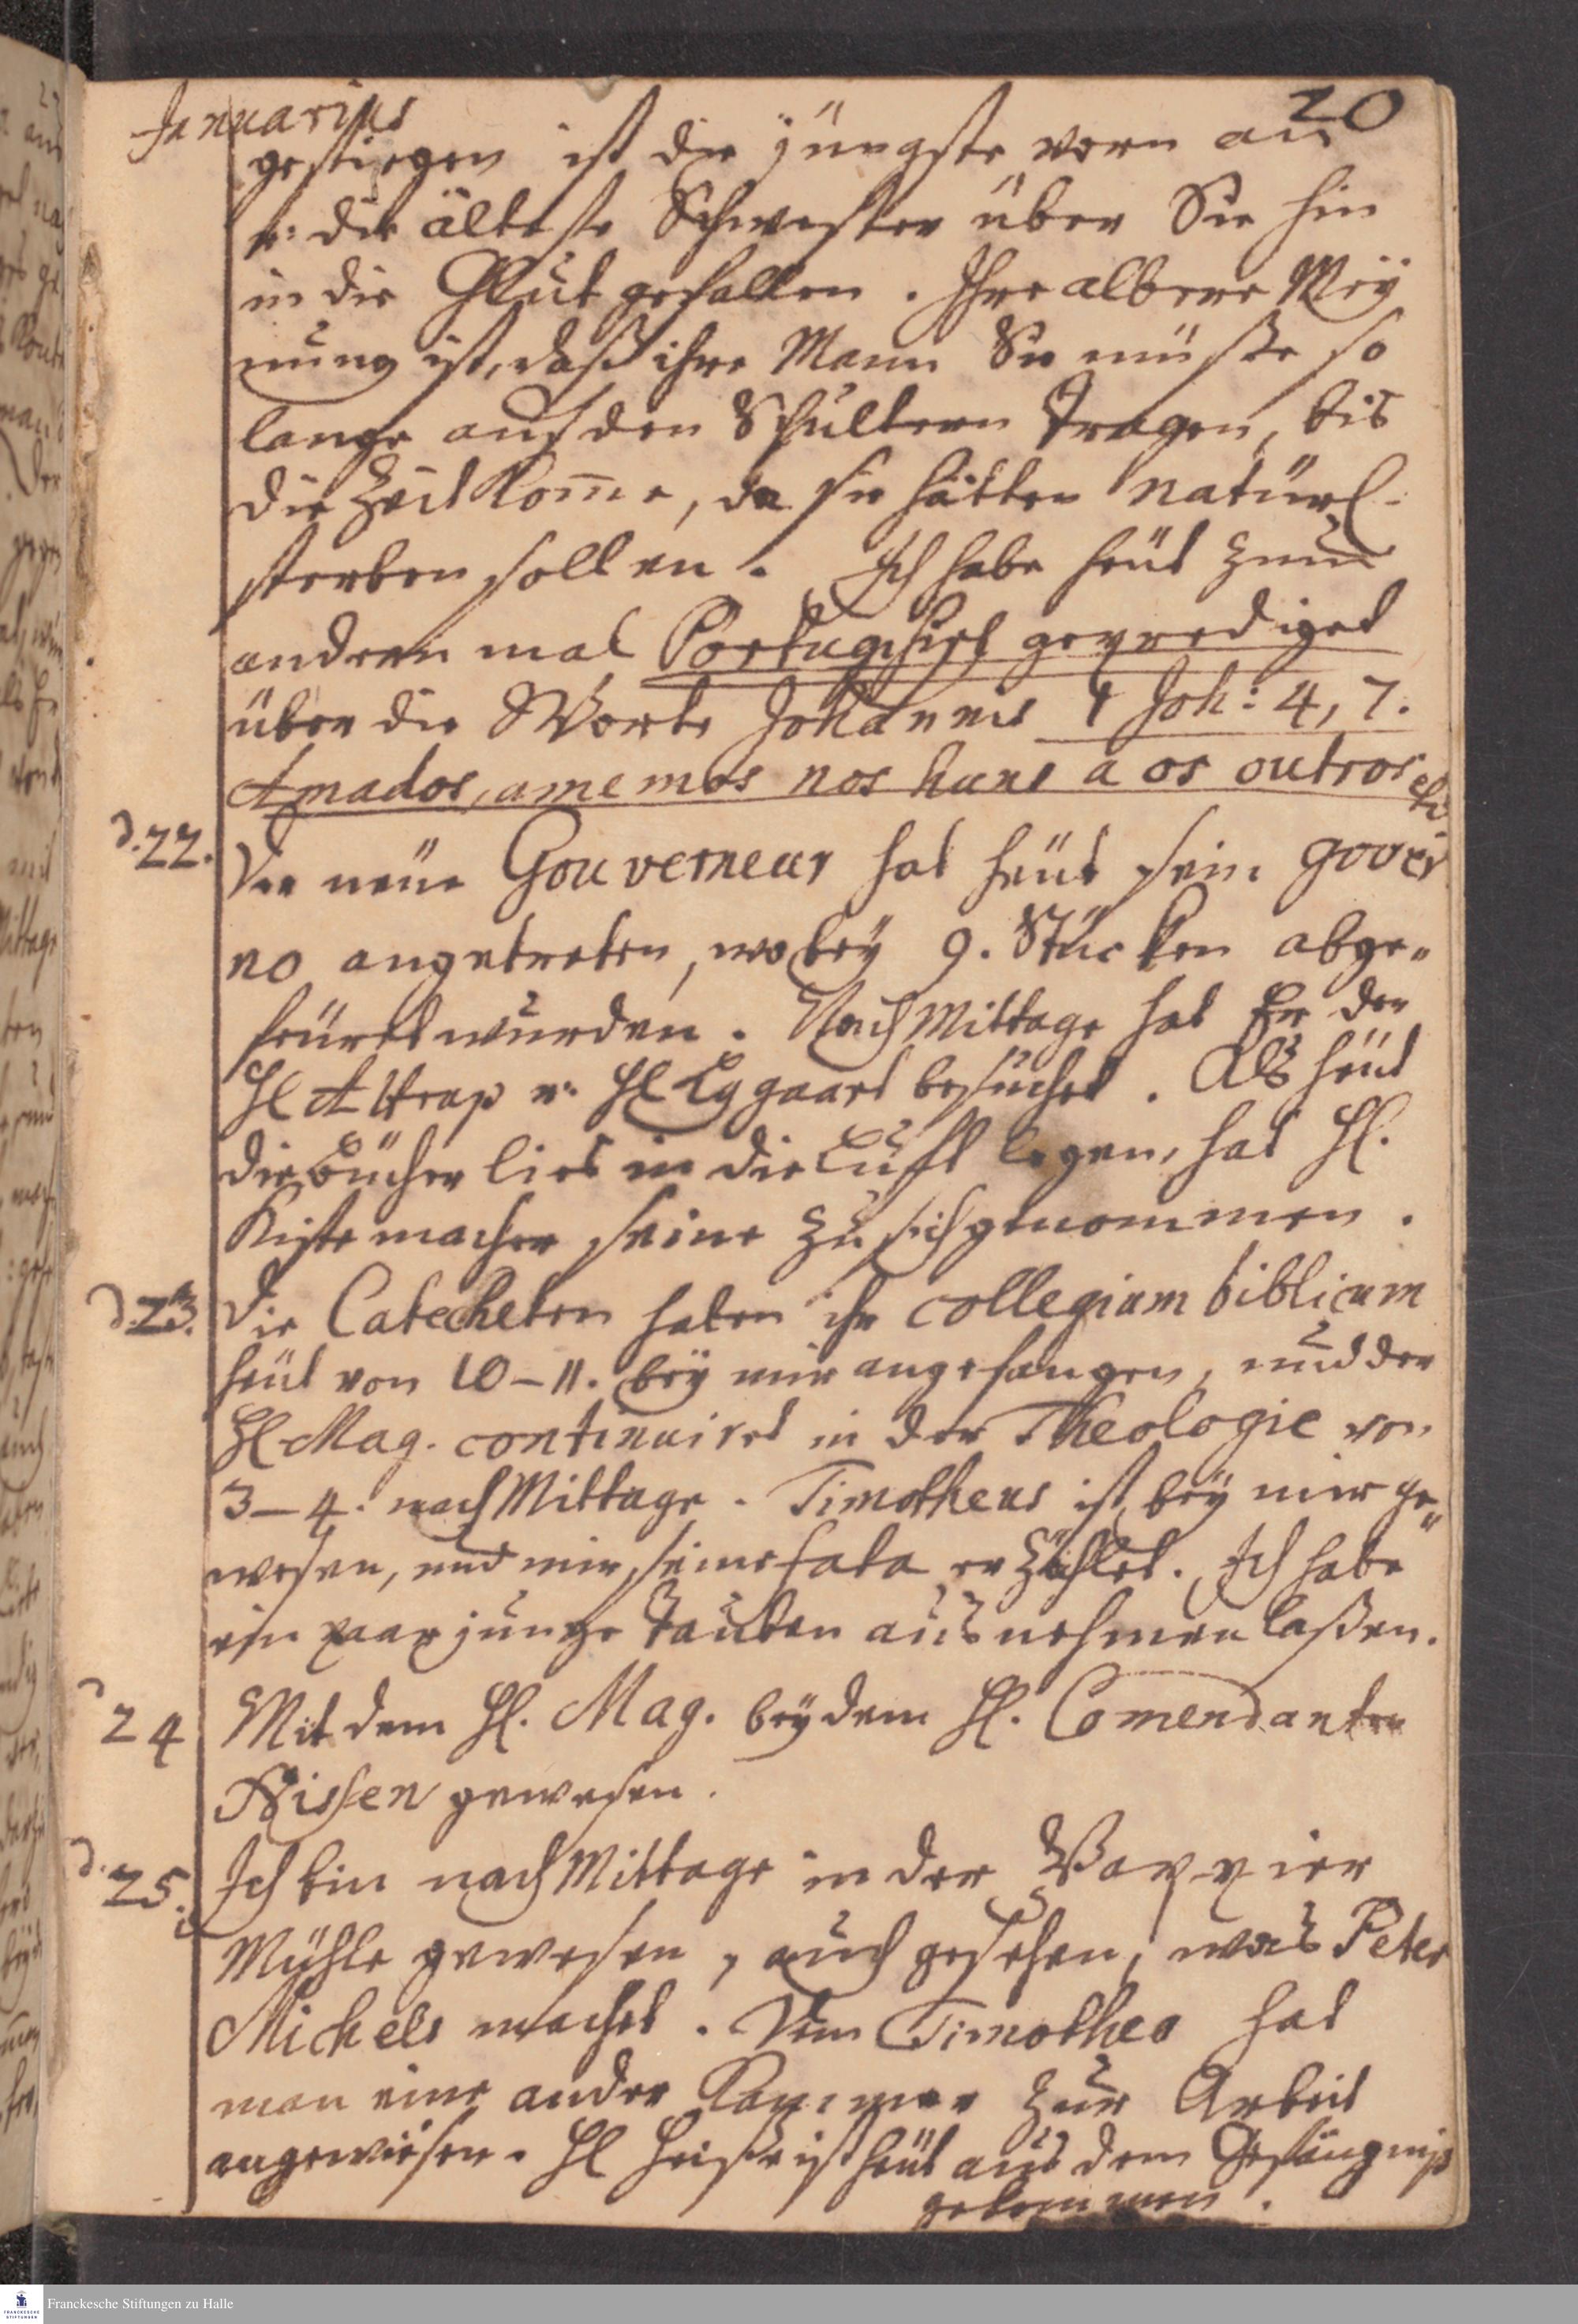 Januarius
20
gestiegen ist die jüngste vorn an
u: die älteste Schwester über Sie hin
in die Glut gefallen. Ihre alberne Mey
nung ist, daß ihre Mann Sie müßte so
lange auf den Schultern tragen, bis
die Zeit kom̅e, da sie hätten natürl.
sterben sollen. Ich habe heut zum
andern mal Portugisisch geprediget
über die Worte Johannis 1 Joh: 4, 7.
Amados, amemos nos huns a os outros etc
d. 22.
Der neue Gouverneur hat heut sein gover
no angetreten, wobey 9. Stücken abge„
feuret wurden. Nach Mittage hat Er den
Hl Attrup u: Hl Eggaart besuchet. Als heut
die Bücher lies in die Lufft legen, hat Hl.
Kistemacher seine zu sich genommen.
d. 23.
Die Catecheten haben ihr collegium biblicum
heut von 10–11. bey mir angefangen, und der
Hl Mag. continuiret in der Theologie von
3–4. nach Mittage. Timotheus ist bey mir ge„
wesen, und mir seine fata erzählet. Ich habe
ein paar junge Tauben ausnehmen laßen.
d 24
Mit dem Hl. Mag. bey dem Hl. Comendanten
Nissen gewesen.
d. 25.
Ich bin nach Mittage in der Pappier
Mühle gewesen, auch gesehen, was Peter
Michels machet. Dem Timotheo hat
man eine andre Kammer zur Arbeit
angewiesen. Hl ist heut aus dem Gefängniß
gekommen.